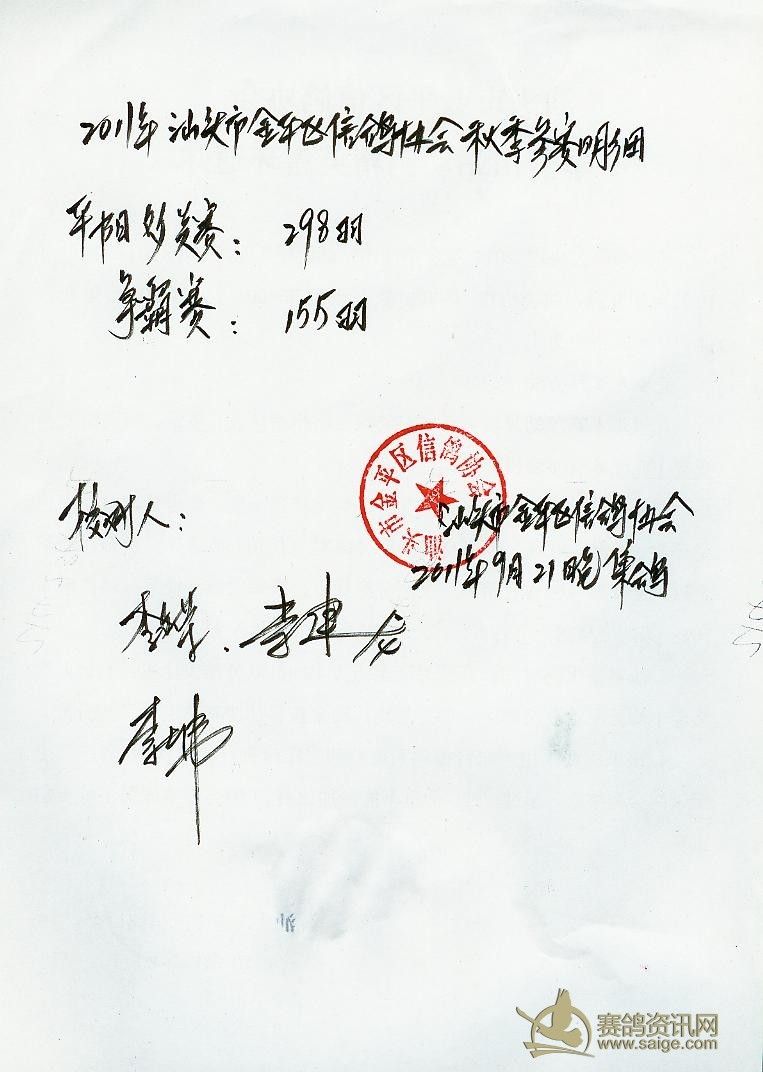 2011年汕头市金平区信鸽协会秋季参赛明细
平阳乡美赛: 298羽
争霸赛: 155羽
汕头市金平区信鸽协会
校对人:
汕头市金平区信鸽协会
2011年9月21晚集鸽
李建龙
李坤
赛鸽资讯网
www.saige.com